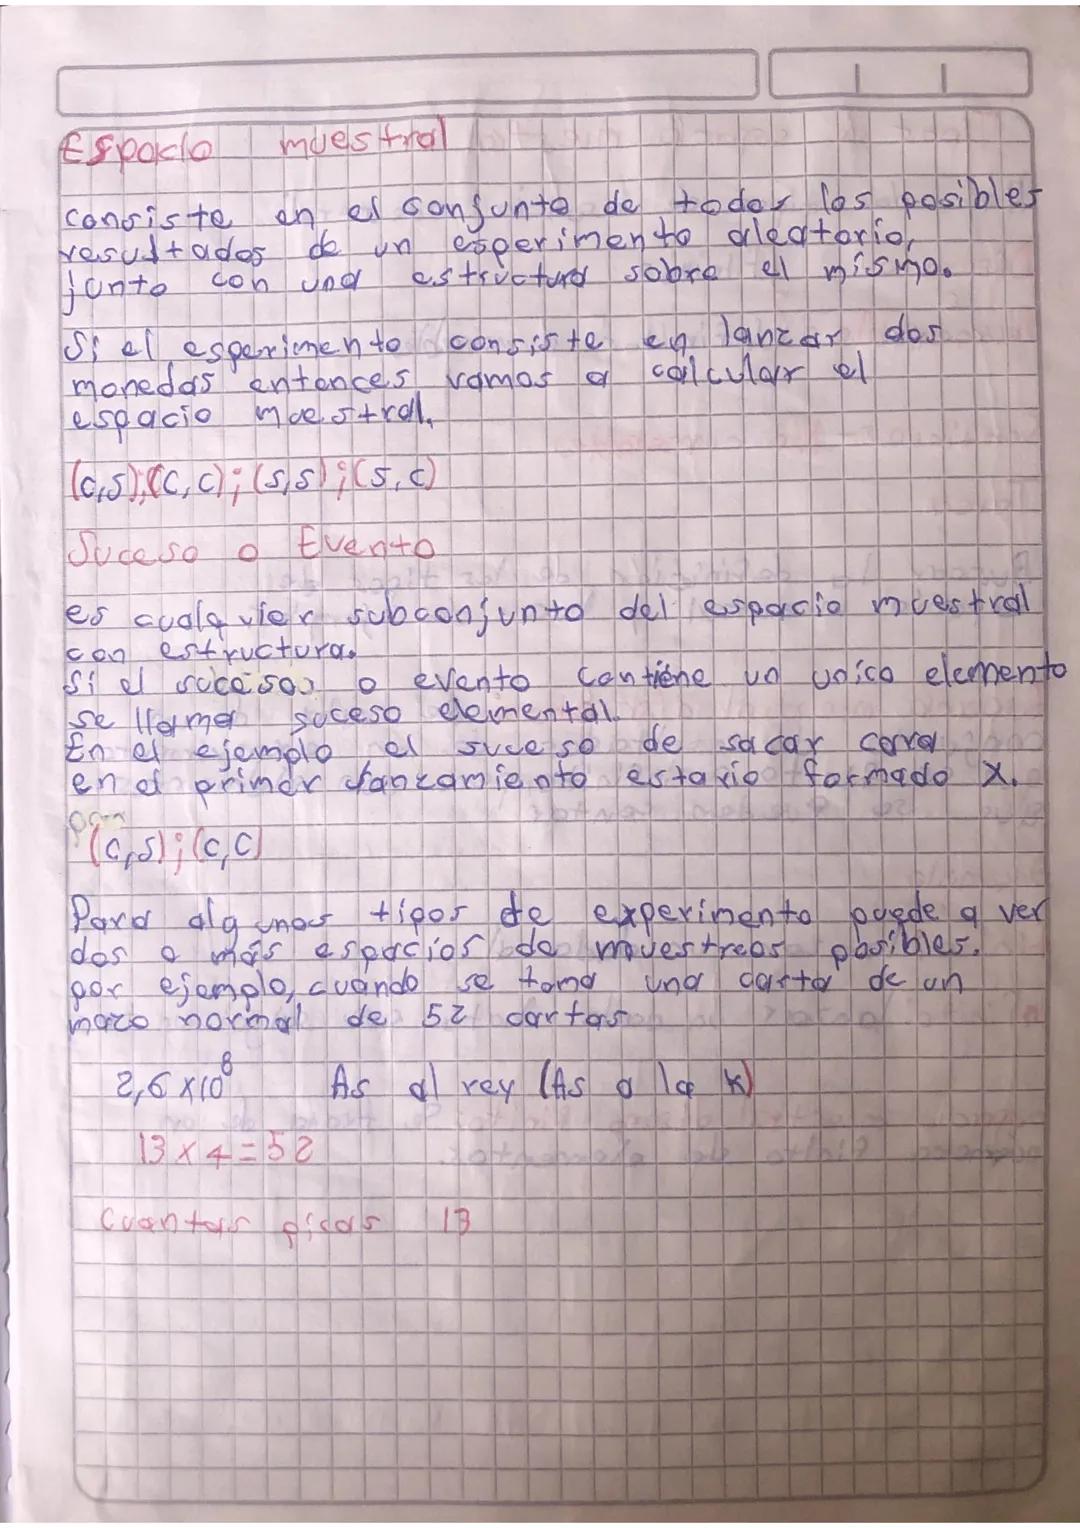 Espacio muestral
consiste en el conjunto de todos los posibles
resultados de un esperimento aleatorio,
junto con una estructura sobre el mismo.
Si el esperimento consiste en lanzar dos
monedas entonces vamos a calcular el
espacio muestral.
(c,s);(c,c);(s,s);(s,c)
Suceso o Evento
es cualquier subconjunto del espacio muestral
con estructura.
Si el suceso o evento contiene un unico elemento
se llama suceso elemental.
En el ejemplo el suceso de sacar cara
en el primer lanzamiento estario formado x.
por
(c,s);(c,c)
Para algunos tipos de experimento puede a ver
dos o más espacios de muestreos posibles.
por ejemplo, cuando se toma una carta de un
mazo normal de 52 cartas
2,6 x10⁸ As al rey (As a la K)
13 x 4 = 52
Cuantas picas 13